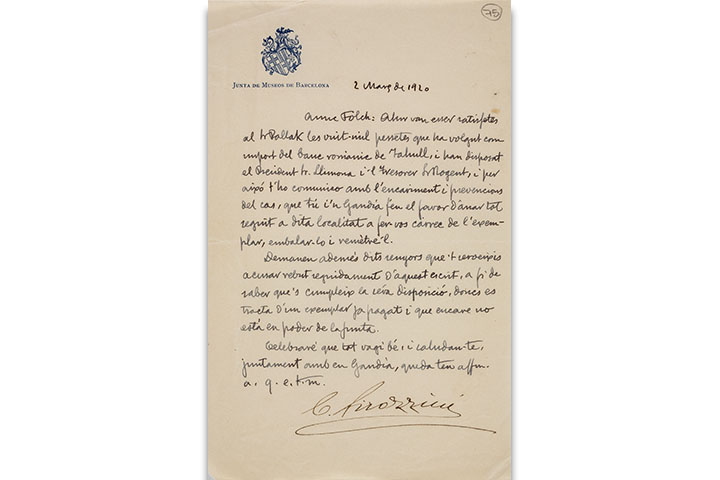 75
JUNTA DE MUSEOS DE BARCELONA
2 Març de 1920
Amic Folch: Ahir van esser satisfetes
al Sr Pollak les vuit-mil pessetes que ha volgut com
import del banc romànic de Tahull, i han disposat
el President Sr. Llimona i'l Tresorer Sr Nogent, i per
això t'ho comunico amb l'encariment i prevencions
del cas, que tu i'n Gandia feu el favor d'anar tot
seguit a dita localitat a fer vos càrrec de l'exem-
plar, embalar-lo i remètre'l.
Demanen ademés dits senyors que't serveixis
acusar rebut seguidament d'aquest escrit, a fi de
saber que's cumpleix la seva disposició, doncs es
tracta d'un exemplar ja pagat i que encare no
está en poder de la Junta.
Celebraré que tot vagi bé, i saludan-te,
juntament amb en Gandia, queda ten affm.
a. q. e. t. m.
C. Pirozzini